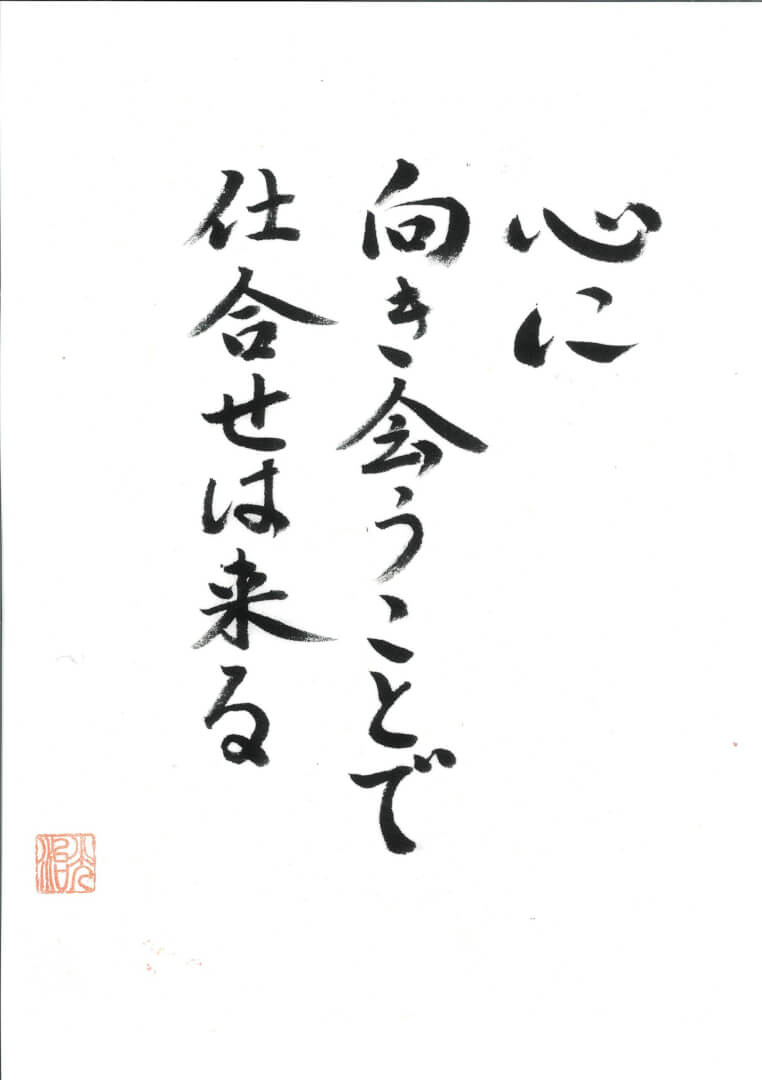 心に
向き会うことで
仕合せは来る